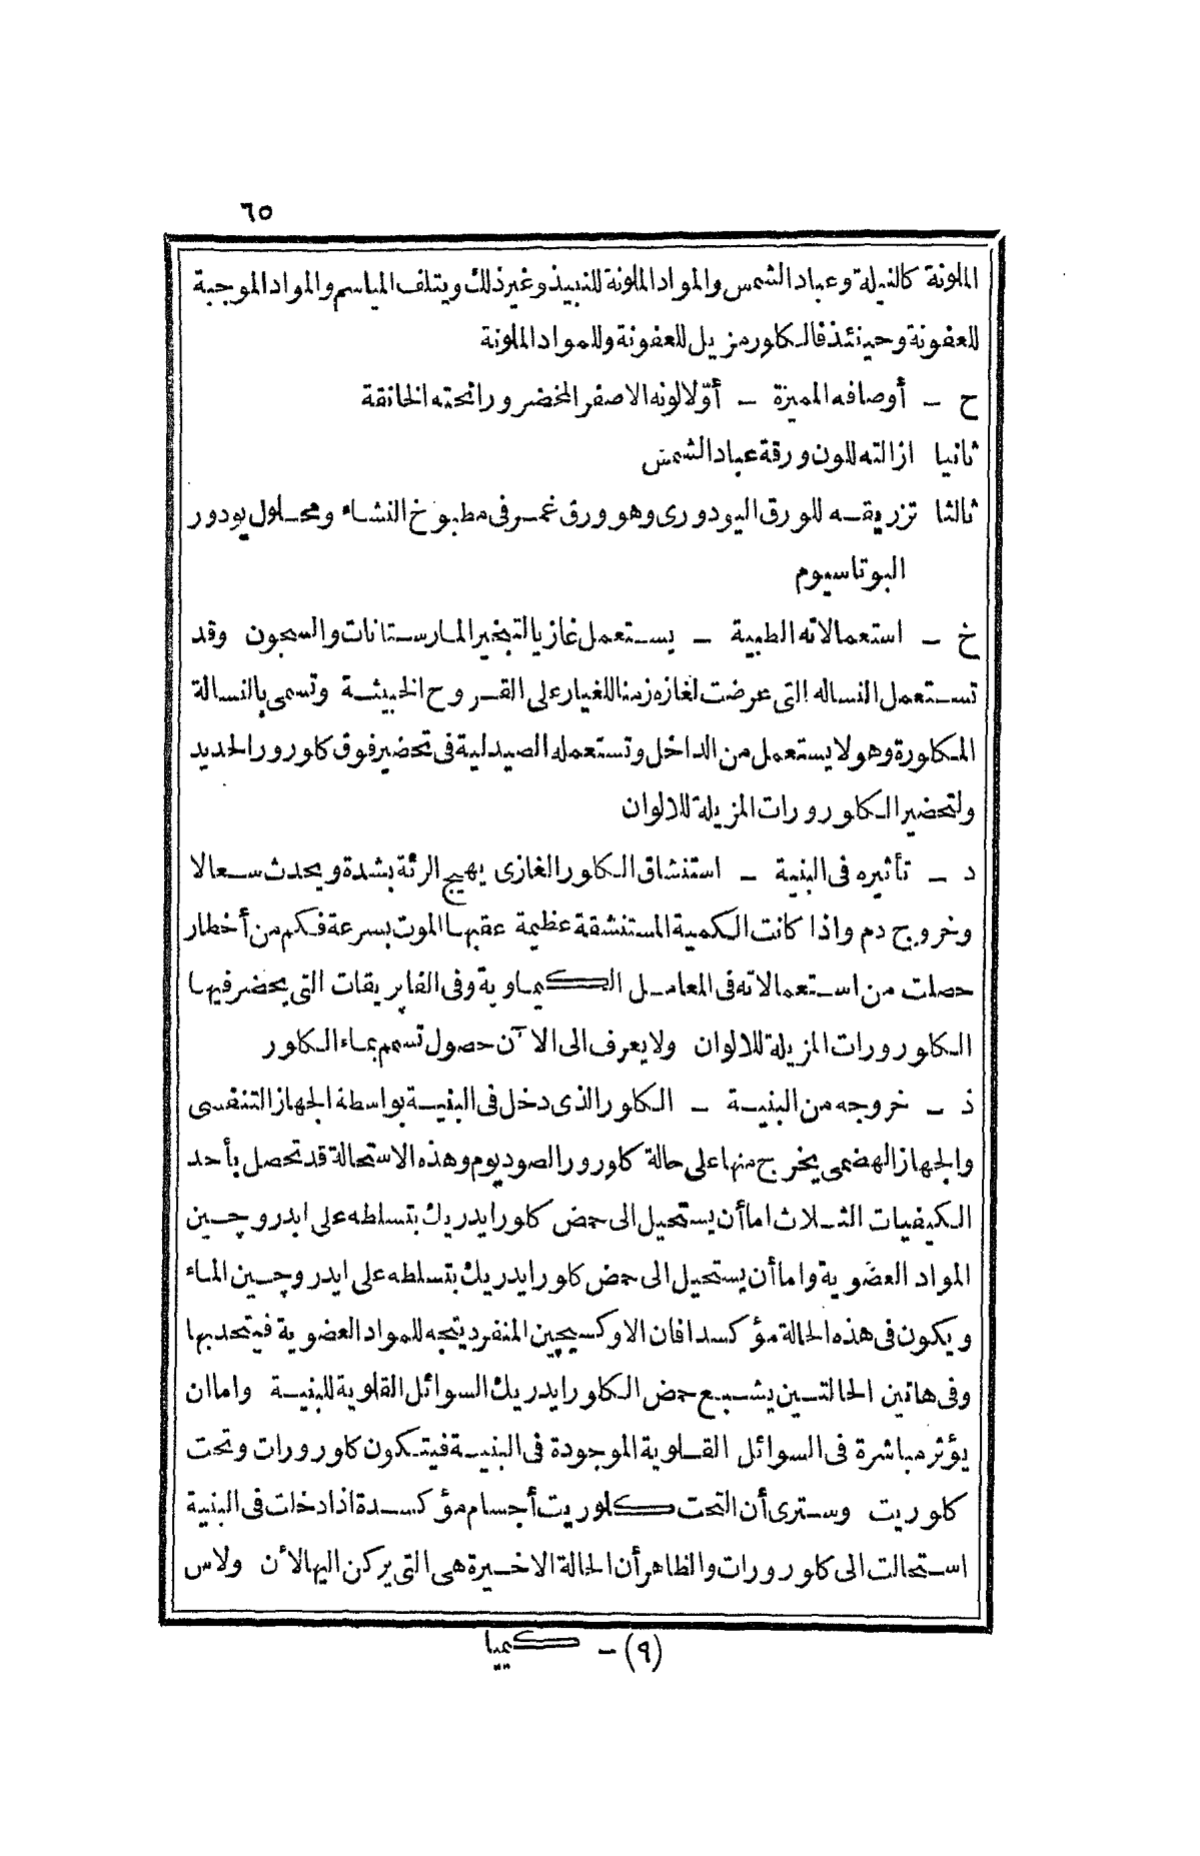 ٦٥
الملونة كالنيلة وعباد الشمس والمواد الملونة للنبيذ وغير ذلك ويتلف المياسم والمواد الموجبة
للعفونة وحينئذ فالكلور مزيل للعفونة وللمواد الملونة
ح ـ أوصافه المميزة ـ أوّلا لونه الاصفر المخضر ورائحته الخانقة
ثانيا ازالته للون ورقة عباد الشمس
ثالثا تزريقه للورق اليودورى وهو ورق غمر فى مطبوخ النشاء ومحلول يودور
البوتاسيوم
خ ـ استعمالاته الطبية ـ يستعمل غازيا لتبخير المارستانات والسجون وقد
تستعمل النساله التى عرضت لغازه زمنا للغيار على القروح الخبيثة وتسمى بالنسالة
المكلورة وهو لا يستعمل من الداخل وتستعمله الصيدلية فى تحضير فوق كلورور الحديد
ولتحضير الكلورورات المزيلة للالوان
د ـ تأثيره فى البنية ـ استنشاق الكلور الغازى يهيج الرئة بشدة ويحدث سعالا
وخروج دم واذا كانت الكمية المستنشقة عظيمة عقبها الموت بسرعة فكم من أخطار
حصلت من استعمالاته فى المعامل الكيماوية وفى الفابريقات التى يحضر فيها
الكلورورات المزيلة للالوان ولا يعرف الى الآن حصول تسمم بماء الكلور
ذ ـ خروجه من البنية ـ الكلور الذى دخل فى البنية بواسطة الجهاز التنفسى
والجهاز الهضمى يخرج منها على حالة كلورور الصوديوم وهذه الاستحالة قد تحصل بأحد
الكيفيات الثلاث اما أن يستحيل الى حمض كلورايدريك بتسلطه على ايدروچين
المواد العضوية واما أن يستحيل الى حمض كلورايدريك بتسلطه على ايدروچين الماء
ويكون فى هذه الحالة مؤكسدا فان الاوكسيچين المنفرد يتجه للمواد العضوية فيتحد بها
وفى هاتين الحالتين يشبع حمض الكلورايدريك السوائل القلوية للبنية واما ان
يؤثر مباشرة فى السوائل القلوية الموجودة فى البنية فيتكون كلورورات وتحت
كلوريت وسترى أن التحت كلوريت أجسام مؤكسدة اذا دخلت فى البنية
استحالت الى كلورورات والظاهر أن الحالة الاخيرة هى التى يركن اليها الأن ولاس
(٩) ـ كيميا